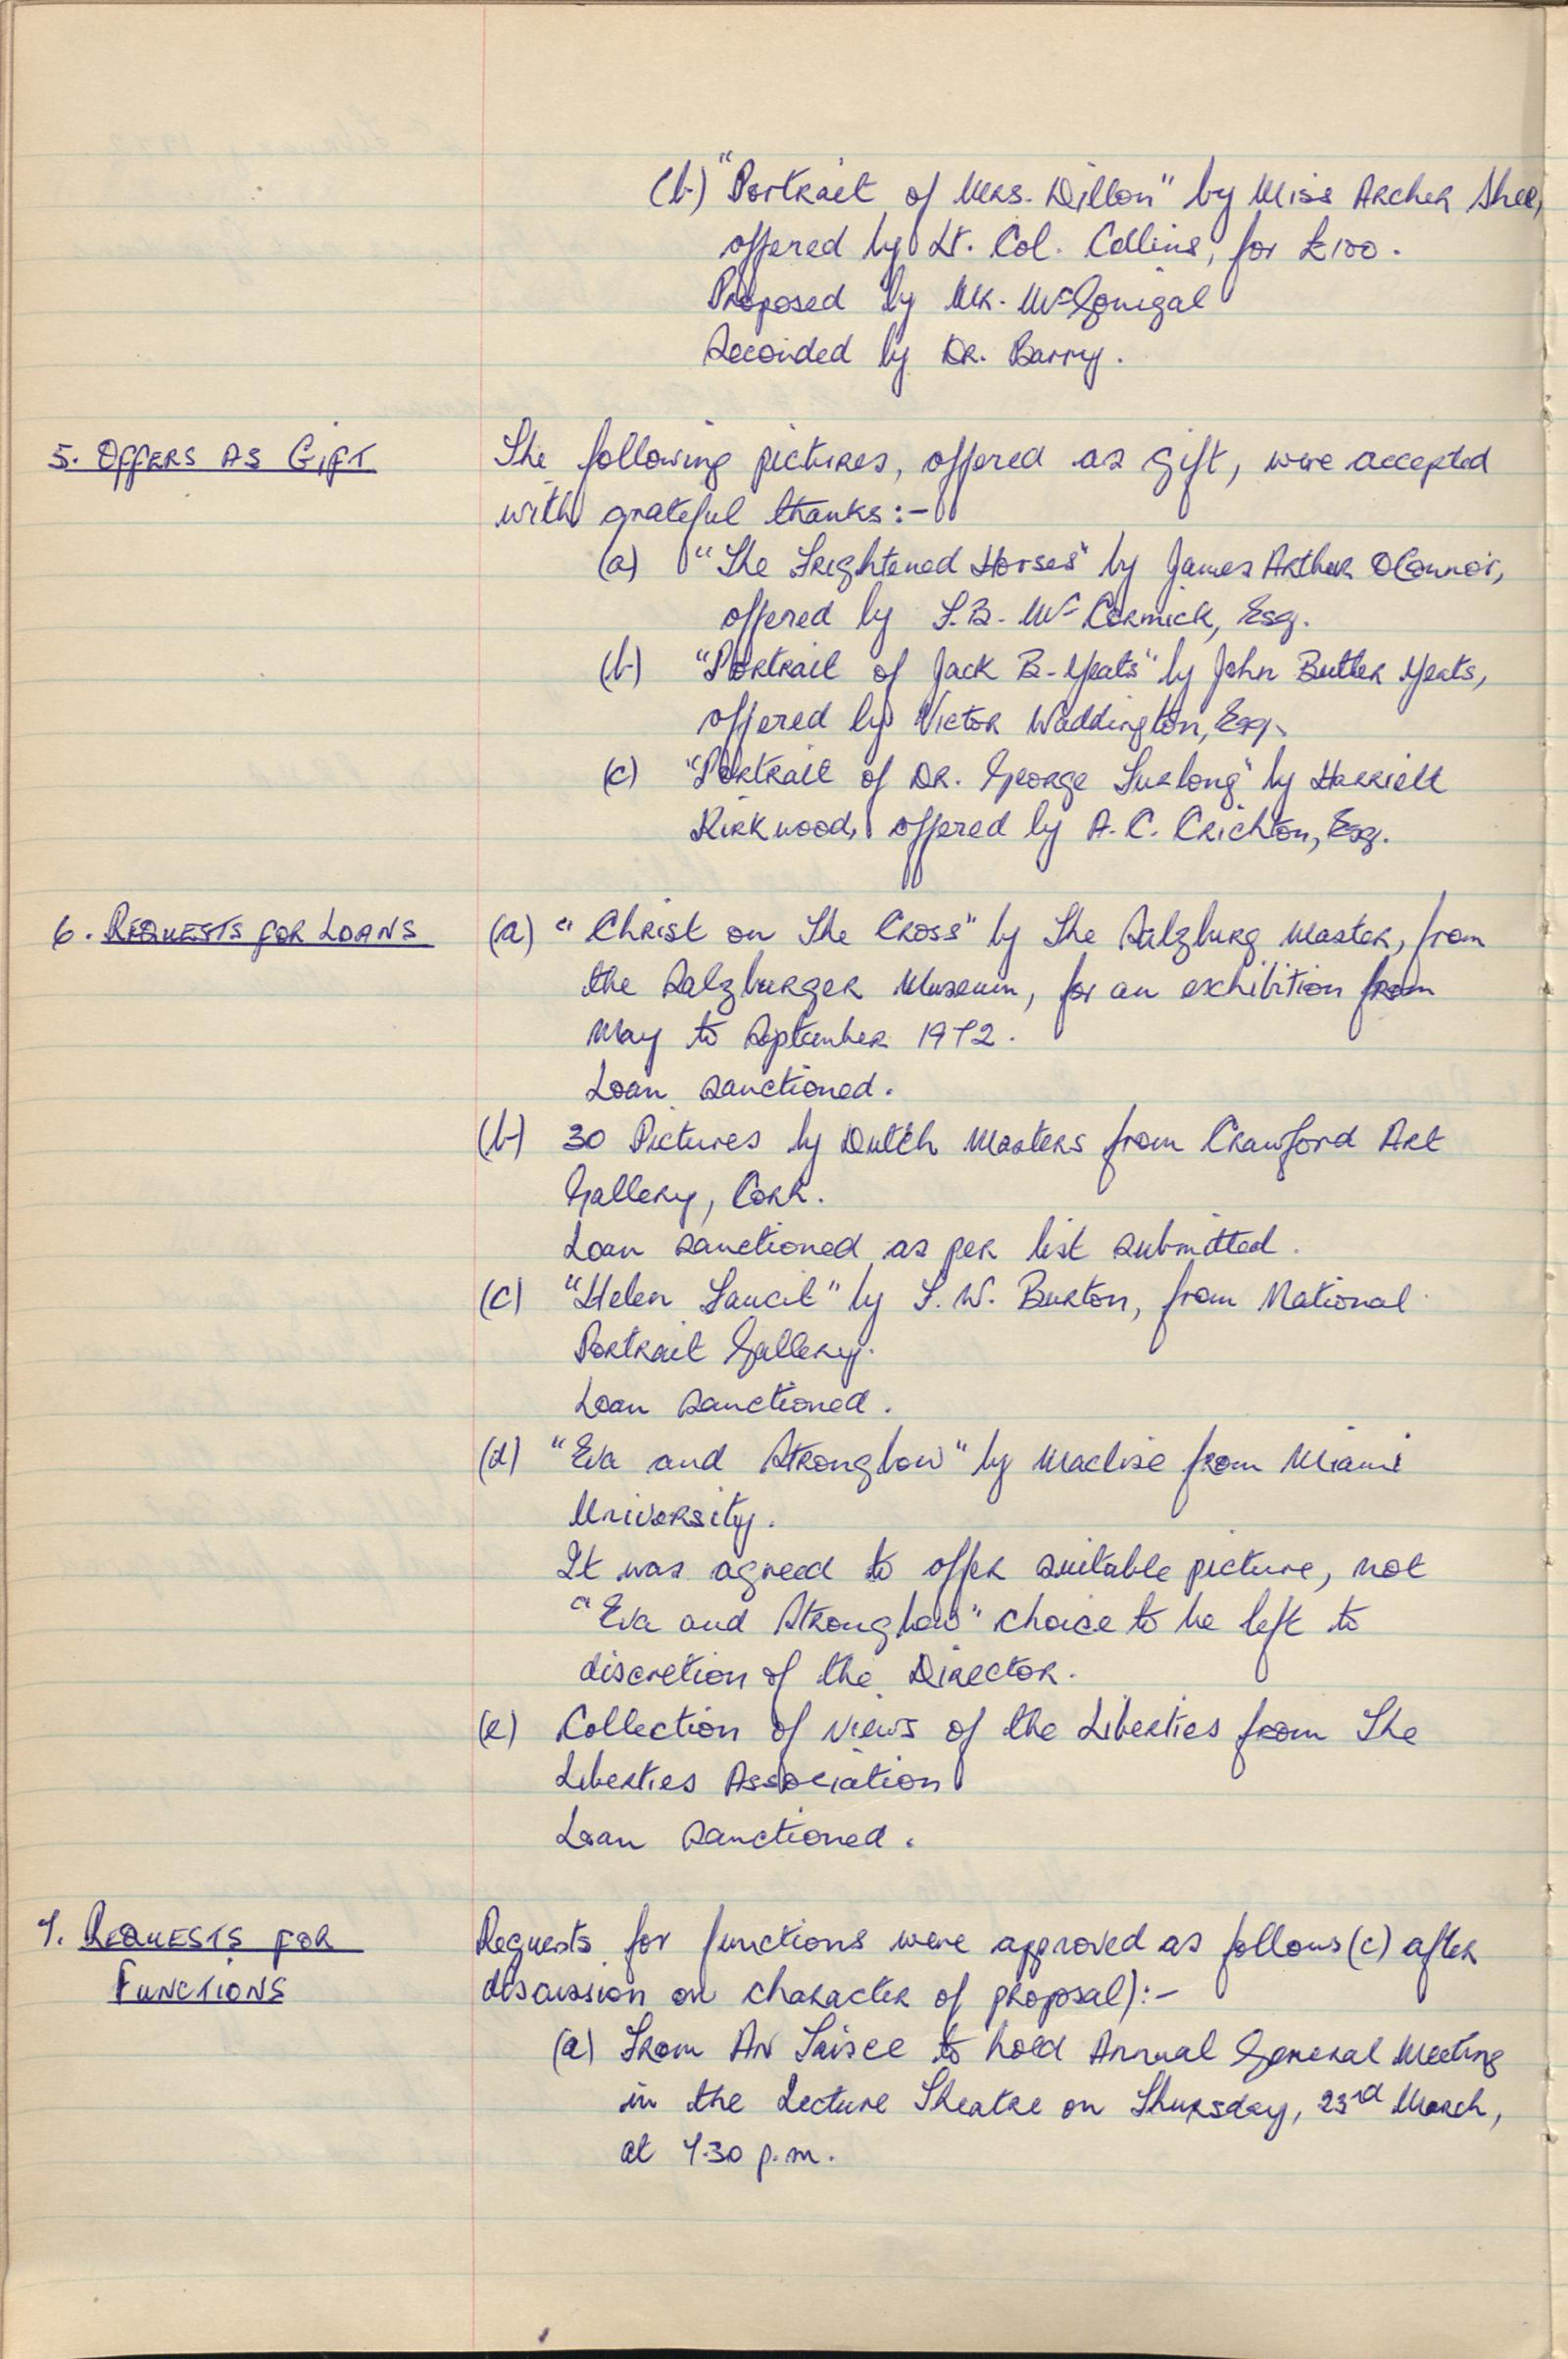 (b) "Portrait of Mrs. Dillon" by Miss Archer Shee,
offered by Lt. Col. Collins, for £100.
Proposed by Mr. McGonigal
Seconded by Dr. Barry.
5. Offers as Gift
The following pictures, offered as gift, were accepted
with grateful thanks:-
(a) "The Frightened Horses" by James Arthur O'Connor,
offered by F.B. McCormick, Esq.
(b) "Portrait of Jack B. Yeats" by John Butler Yeats,
offered by Victor Waddington, Esq.
(c) "Portrait of Dr. George Furlong" by Harriett
Kirkwood, offered by A.C. Crichton, Esq.
6. Requests for Loans
(a) "Christ on The Cross" by The Salzburg Master, from
the Salzburger Museum, for an exhibition from
May to September 1972.
Loan sanctioned.
(b) 30 Pictures by Dutch Masters from Crawford Art
Gallery, Cork.
Loan sanctioned as per list submitted.
(c) "Helen Faucit" by F.W. Burton, from National
Portrait Gallery.
Loan sanctioned.
(d) "Eva and Strongbow" by Maclise from Miami
University.
It was agreed to offer suitable picture, not
"Eva and Strongbow" choice to be left to
discretion of the Director.
(e) Collection of views of the Liberties from The
Liberties Association
Loan sanctioned.
7. Requests for
Functions
Requests for functions were approved as follows (c) after
discussion on character of proposal):-
(a) From An Taisce to hold Annual General Meeting
in the Lecture Theatre on Thursday, 23rd March,
at 7.30 p.m.